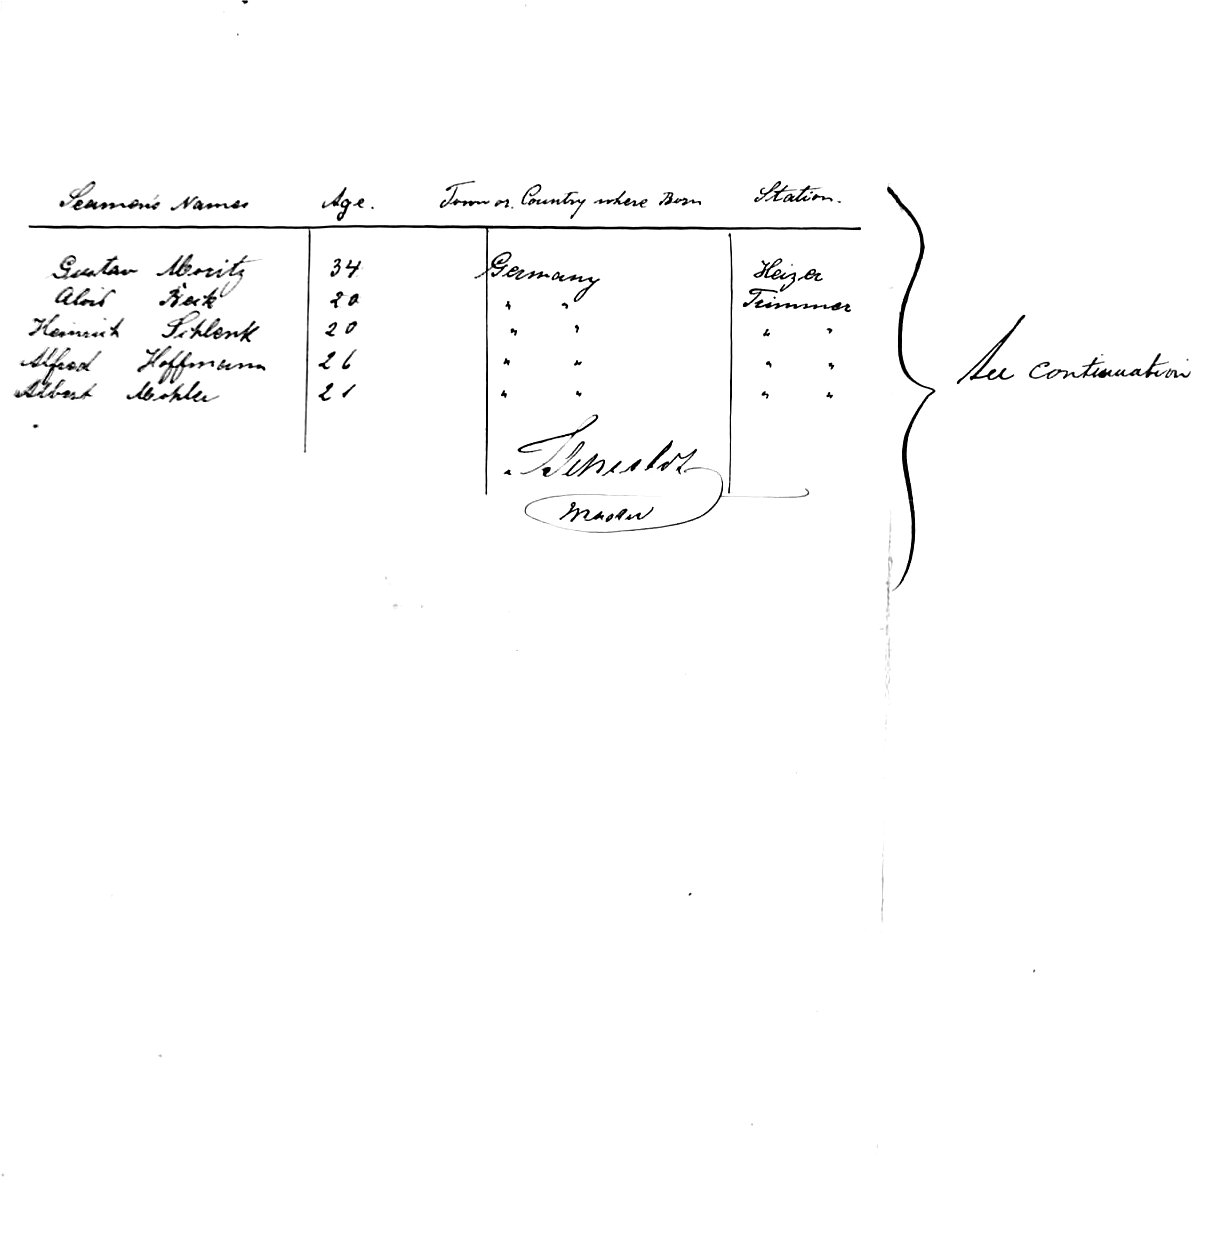 Seamen's Names Age. Town or Country where Born Station.
Gustav Moritz 34 Germany Heizer
Alois Beck 20 " " Trimmer
Heinrich Schlenk 20 " " " "
Alfred Hoffmann 26 " " " "
Albert Mohler 21 " " " "
See continuation
Master